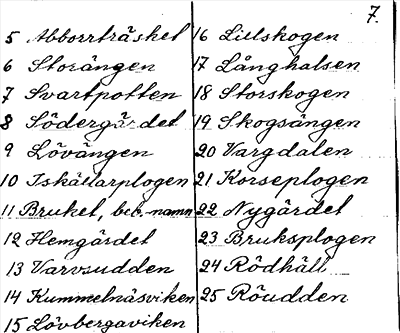 7.
5 Abborrträsket
6 Storängen
7 Svartpotten
8 Södergärdet
9 Lövängen
10 Iskällarplogen
11 Bruket, beb. namn
12 Hemgärdet
13 Varvsudden
14 Kummelnäsviken
15 Lövbergaviken
16 Lillskogen
17 Långhalsen
18 Storskogen
19 Skogsängen
20 Vargdalen
21 Korseplogen
22 Nygärdet
23 Bruksplogen
24 Rödhäll
25 Röudden